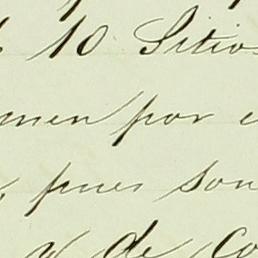 10 Sitio
men por
, pues son
y de Co